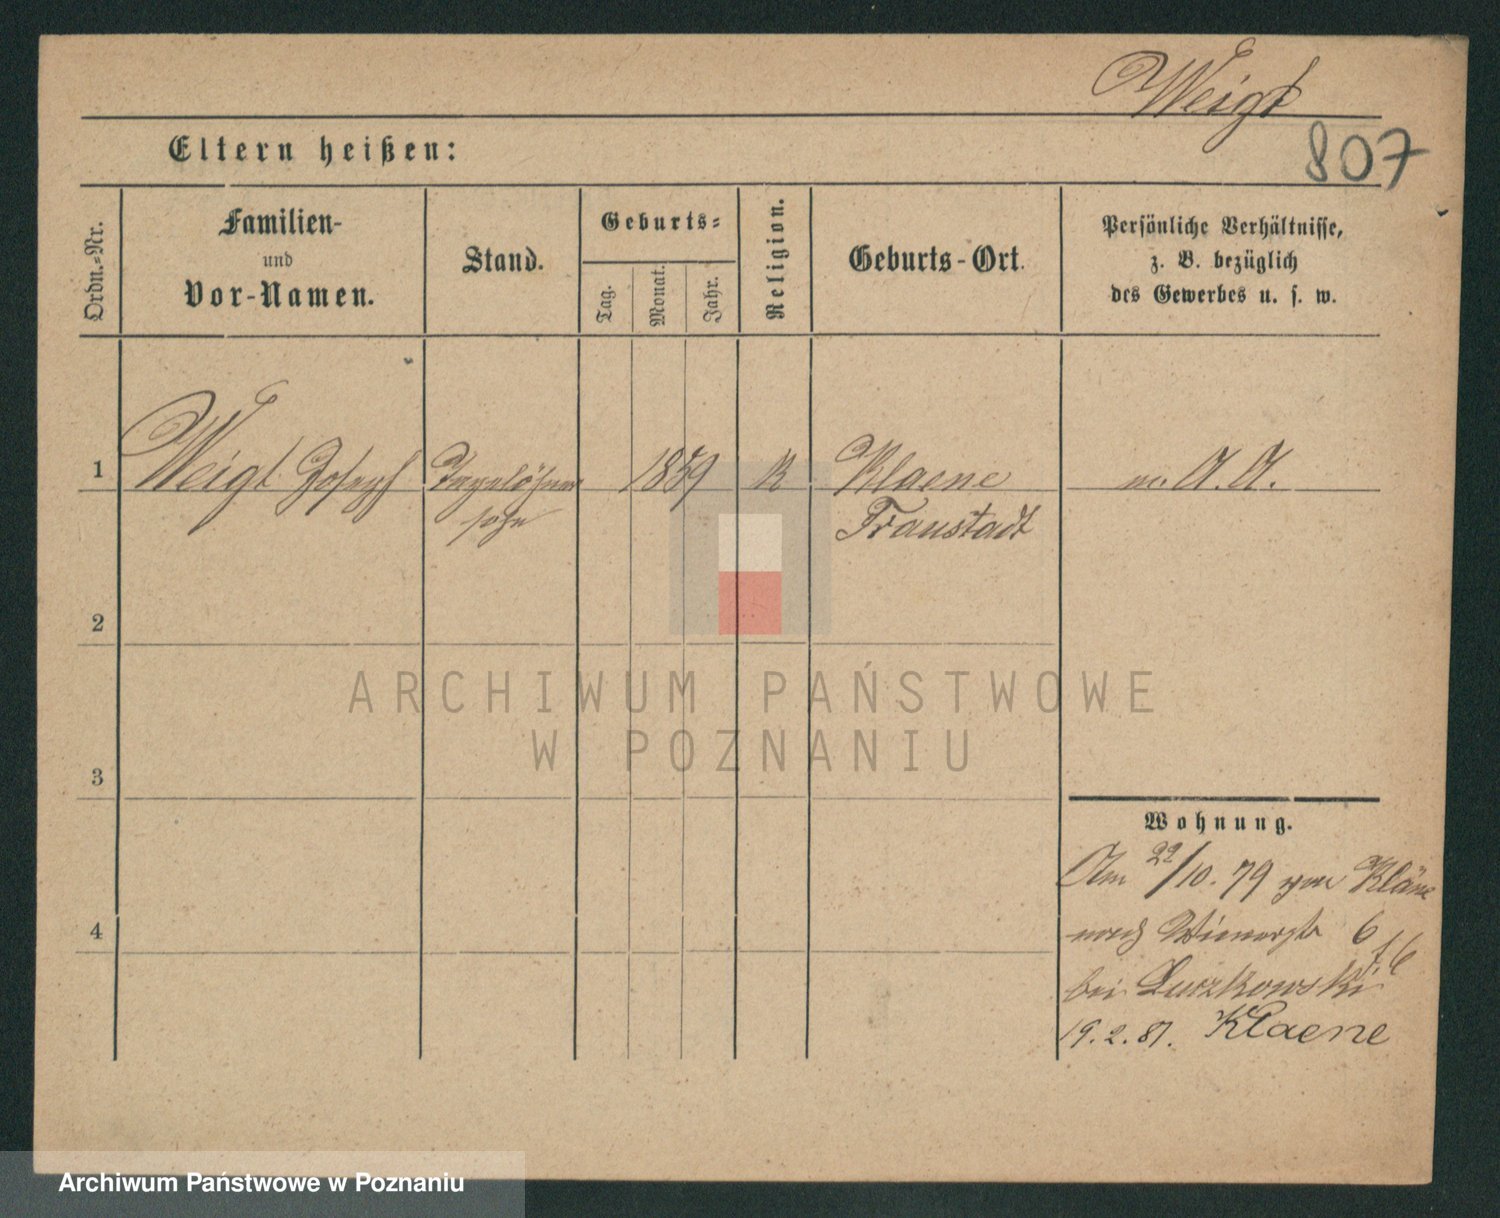 Weigt
807
Eltern heißen:
Ordn.-Nr.
Familien-
und
Vor-Namen.
Stand.
Geburts-
Tag.
Monat.
Jahr.
Religion.
Geburts-Ort.
Persönliche Verhältnisse,
z. B. bezüglich
des Gewerbes u. s. w.
1 Weigt Joseph Tagelöhner 1859 K Klaene m. A. A.
sohn Fraustadt
2
3
4
Wohnung.
Am 22/10. 79 von Kläne
nach Wienerstr 6
bei Luczkowski
19. 2. 81. Klaene
ARCHIWUM PAŃSTWOWE
W POZNANIU
Archiwum Państwowe w Poznaniu